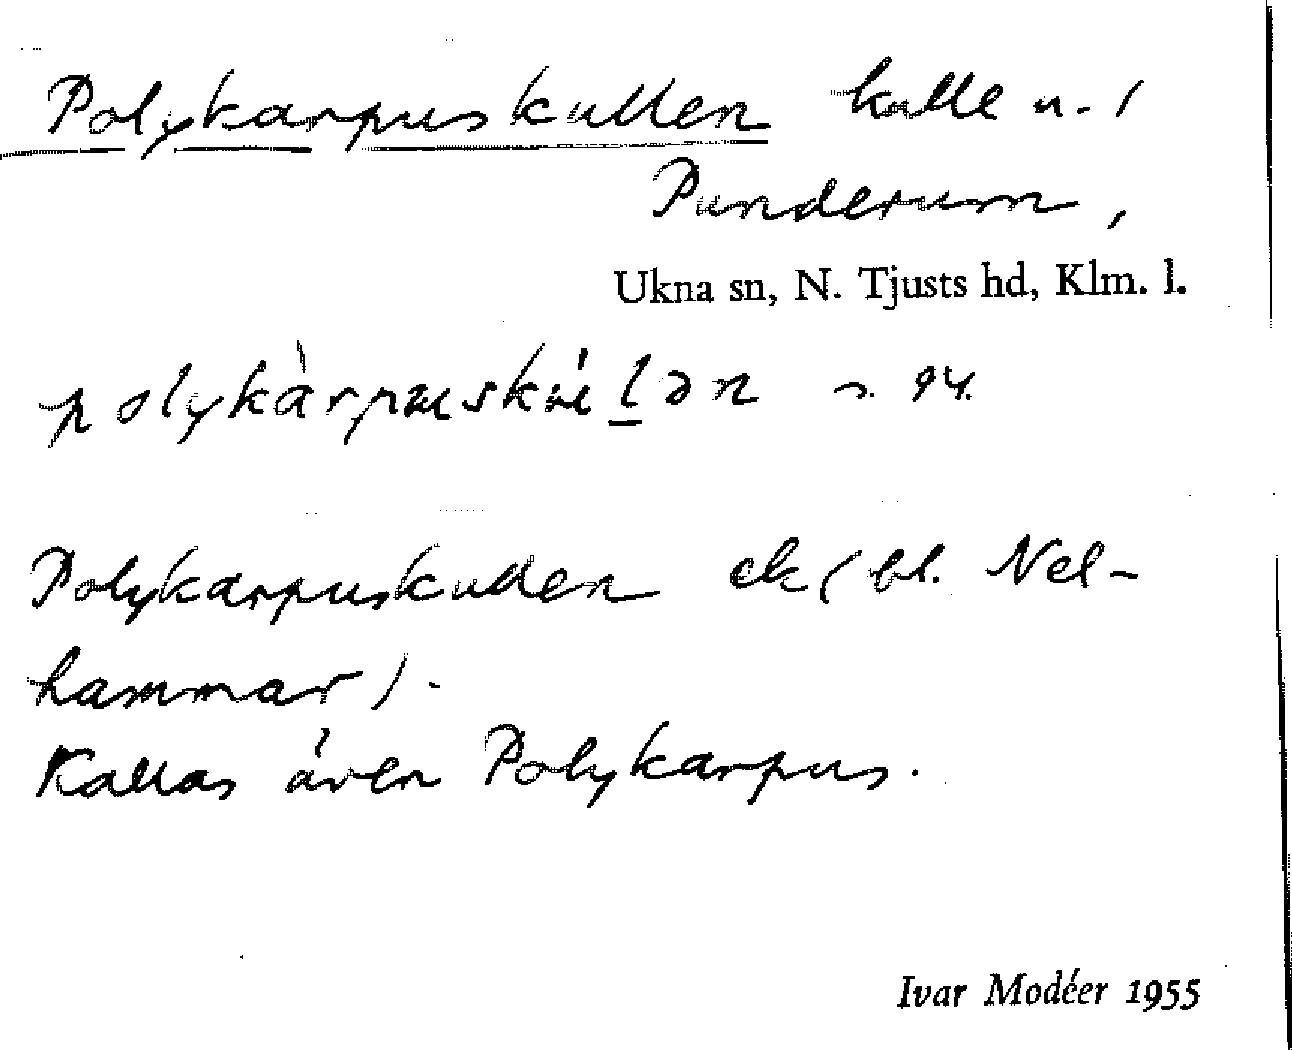 Polykarpuskullen kulle u. /
Punderum,
Ukna sn, N. Tjusts hd, Klm. l.
polykàrpuskúlən n. 94.
Polykarpuskullen ek ( bl. Nel-
hammar ) .
Kallas även Polykarpus.
Ivar Modéer 1955